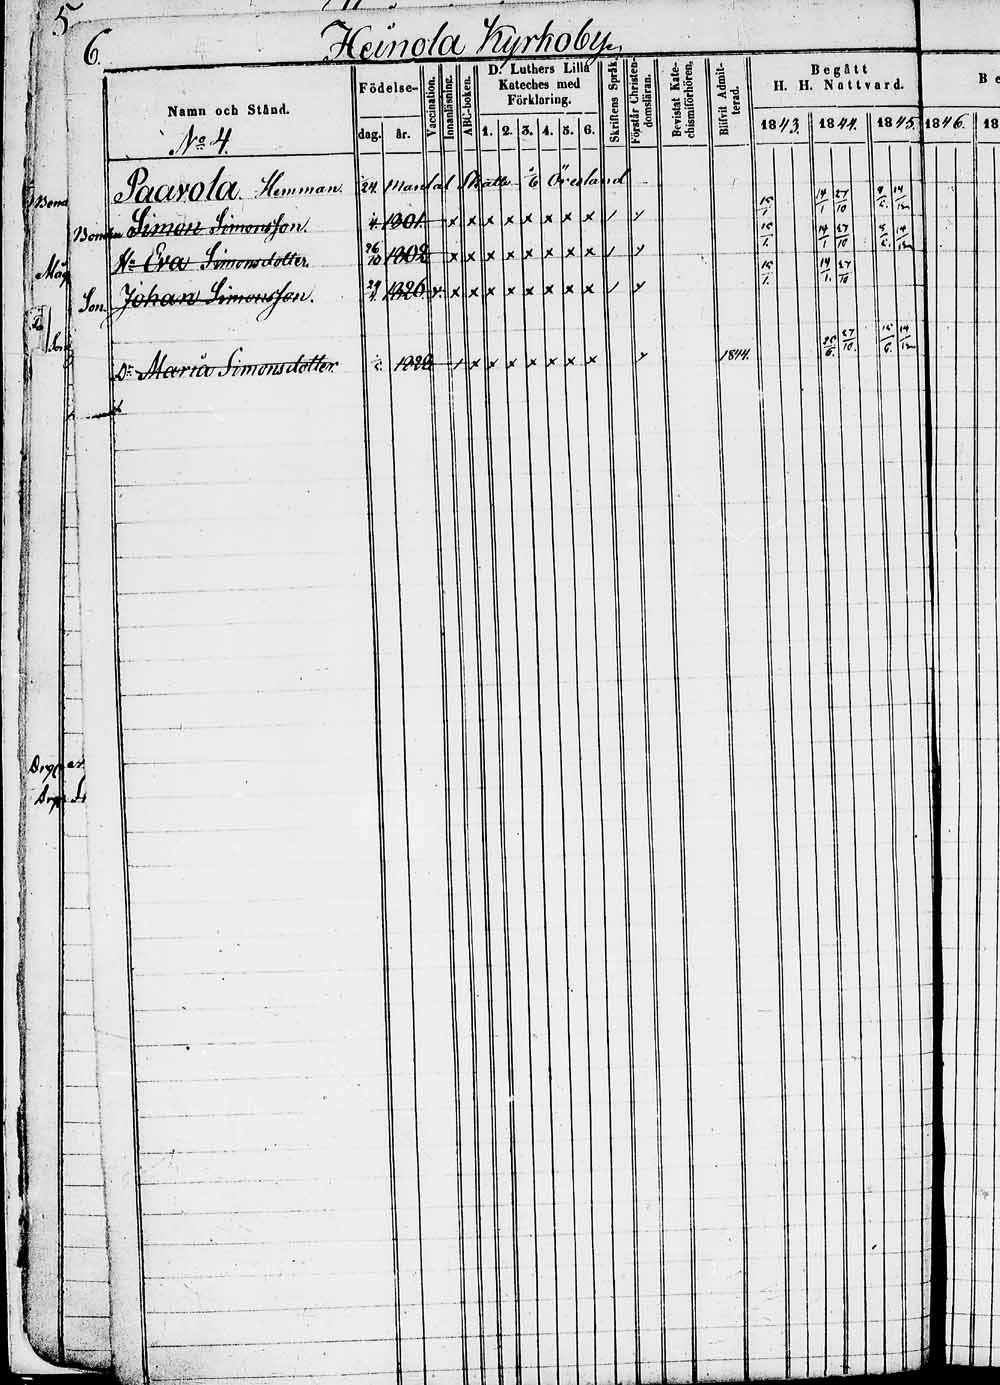 5
6.
Heinola Kyrkoby.
Namn och Stånd.
No 4.
Födelse-
dag. år.
Vaccination.
Innanläsning.
ABC-boken.
D. Luthers Lilla Kateches med Förklaring.
1. 2. 3. 4. 5. 6.
Skriftens Språk.
Förstår Christendomsläran.
Bevistat Katechismiförhören.
Blifvit Admitterad.
Begått H. H. Nattvard.
1843. 1844. 1845. 1846. 18
Paavola. Hemman. 24 Mantal Skatte 1/6 Öresland
Bonden Simon Simonsson. 1801. x x x x x x x x / y 15/1. 14/1 27/10 14/12
Hu Eva Simonsdotter. 26/10 1802 x x x x x x x x / y 15/1. 14/1 27/10 14/12
Son Johan Simonsson. 1826 v. x x x x x x x x / y 15/1. 14/1. 27/10
Dr Maria Simonsdotter. / x x x x x x x y 1844. 25/6. 27/10. 14/12
Bond
Måg
Son